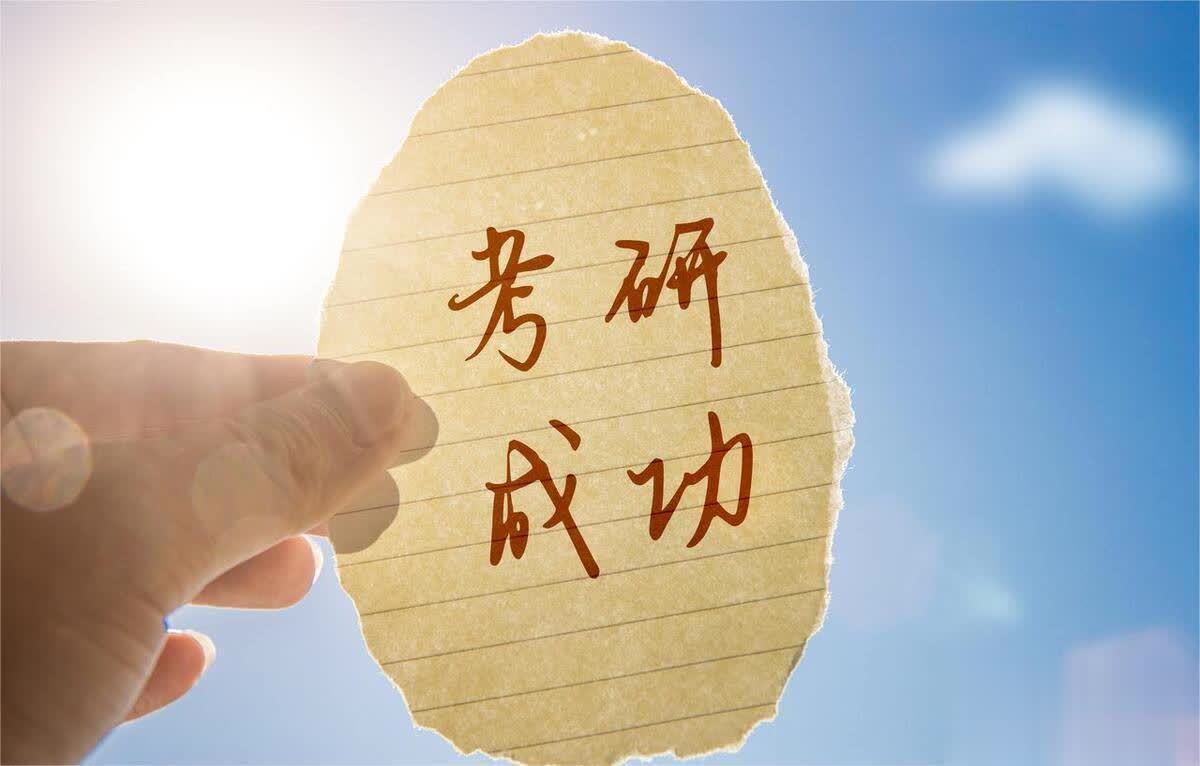 考研
成功